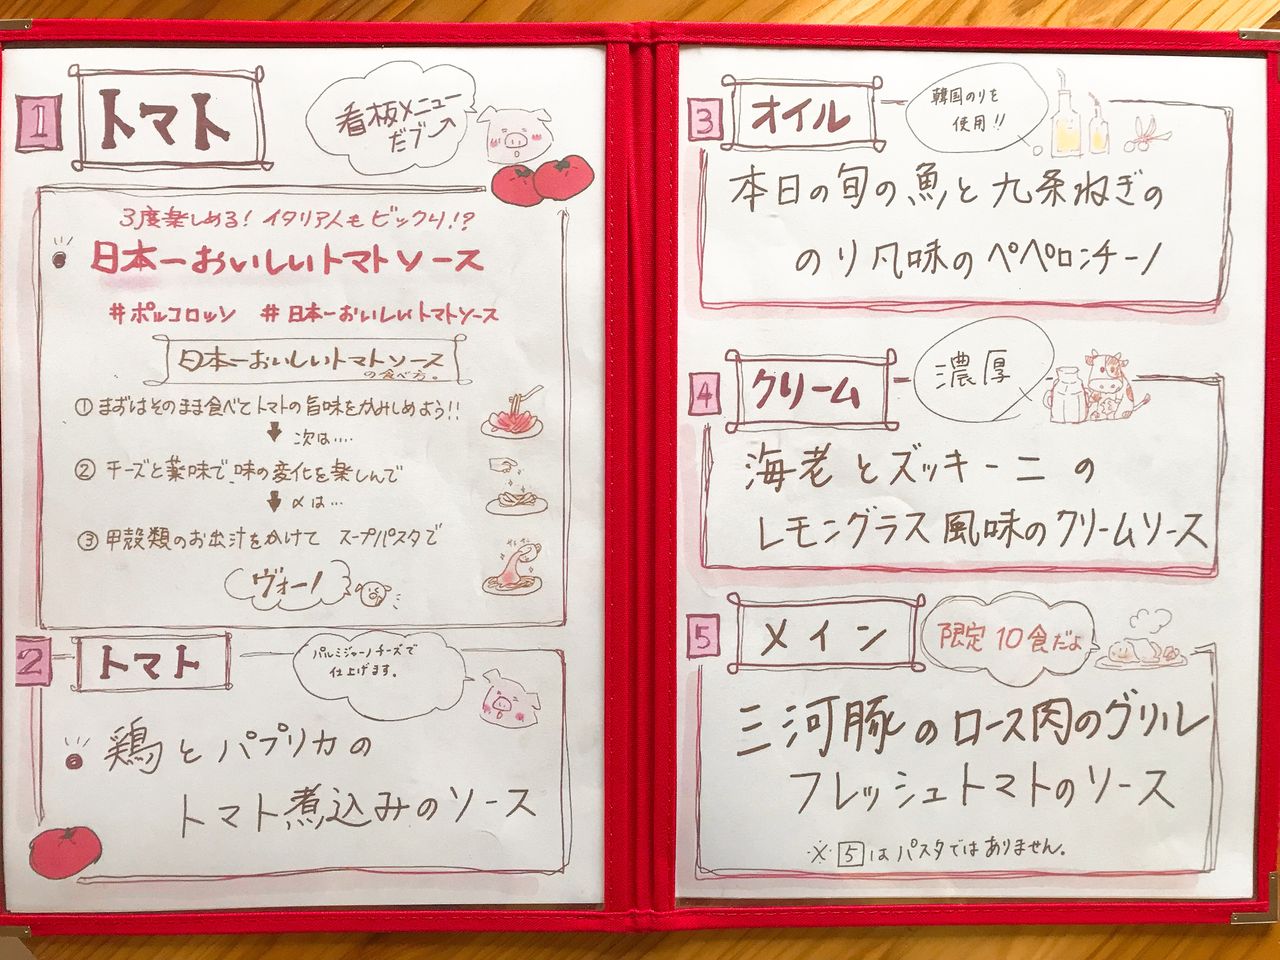 1
トマト
看板メニュー
だブー
3度楽しめる!イタリア人もビックリ!?
日本一おいしいトマトソース
#ポルコロッソ #日本一おいしいトマトソース
日本一おいしいトマトソース
の食べ方。
① まずはそのまま食べてトマトの旨味をかみしめよう!!
次は....
② チーズと薬味で味の変化を楽しんで
〆は...
③ 甲殻類のお出汁をかけて スープパスタで
ヴォーノ
2
トマト
パルミジャーノチーズで
仕上げます。
鶏とパプリカの
トマト煮込みのソース
3
オイル
韓国のりを
使用!!
本日の旬の魚と九条ねぎの
のり風味のペペロンチーノ
4
クリーム
濃厚
海老とズッキーニの
レモングラス風味のクリームソース
5
メイン
限定10食だよ
三河豚のロース肉のグリル
フレッシュトマトのソース
※5はパスタではありません。